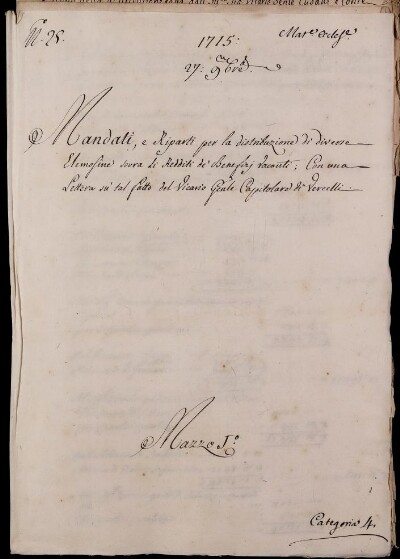 N.° 28.
1715.
Mat.e Eccles.e
27. 9bre
Mandati, e Riparti per la distribuzione di diverse
Elemosine sovra li Redditi de Benefizj vacanti; Con una
Lettera su tal fatto del Vicario Gñle Cappitolare di Vercelli.
Mazzo I.°
Categoria 4.